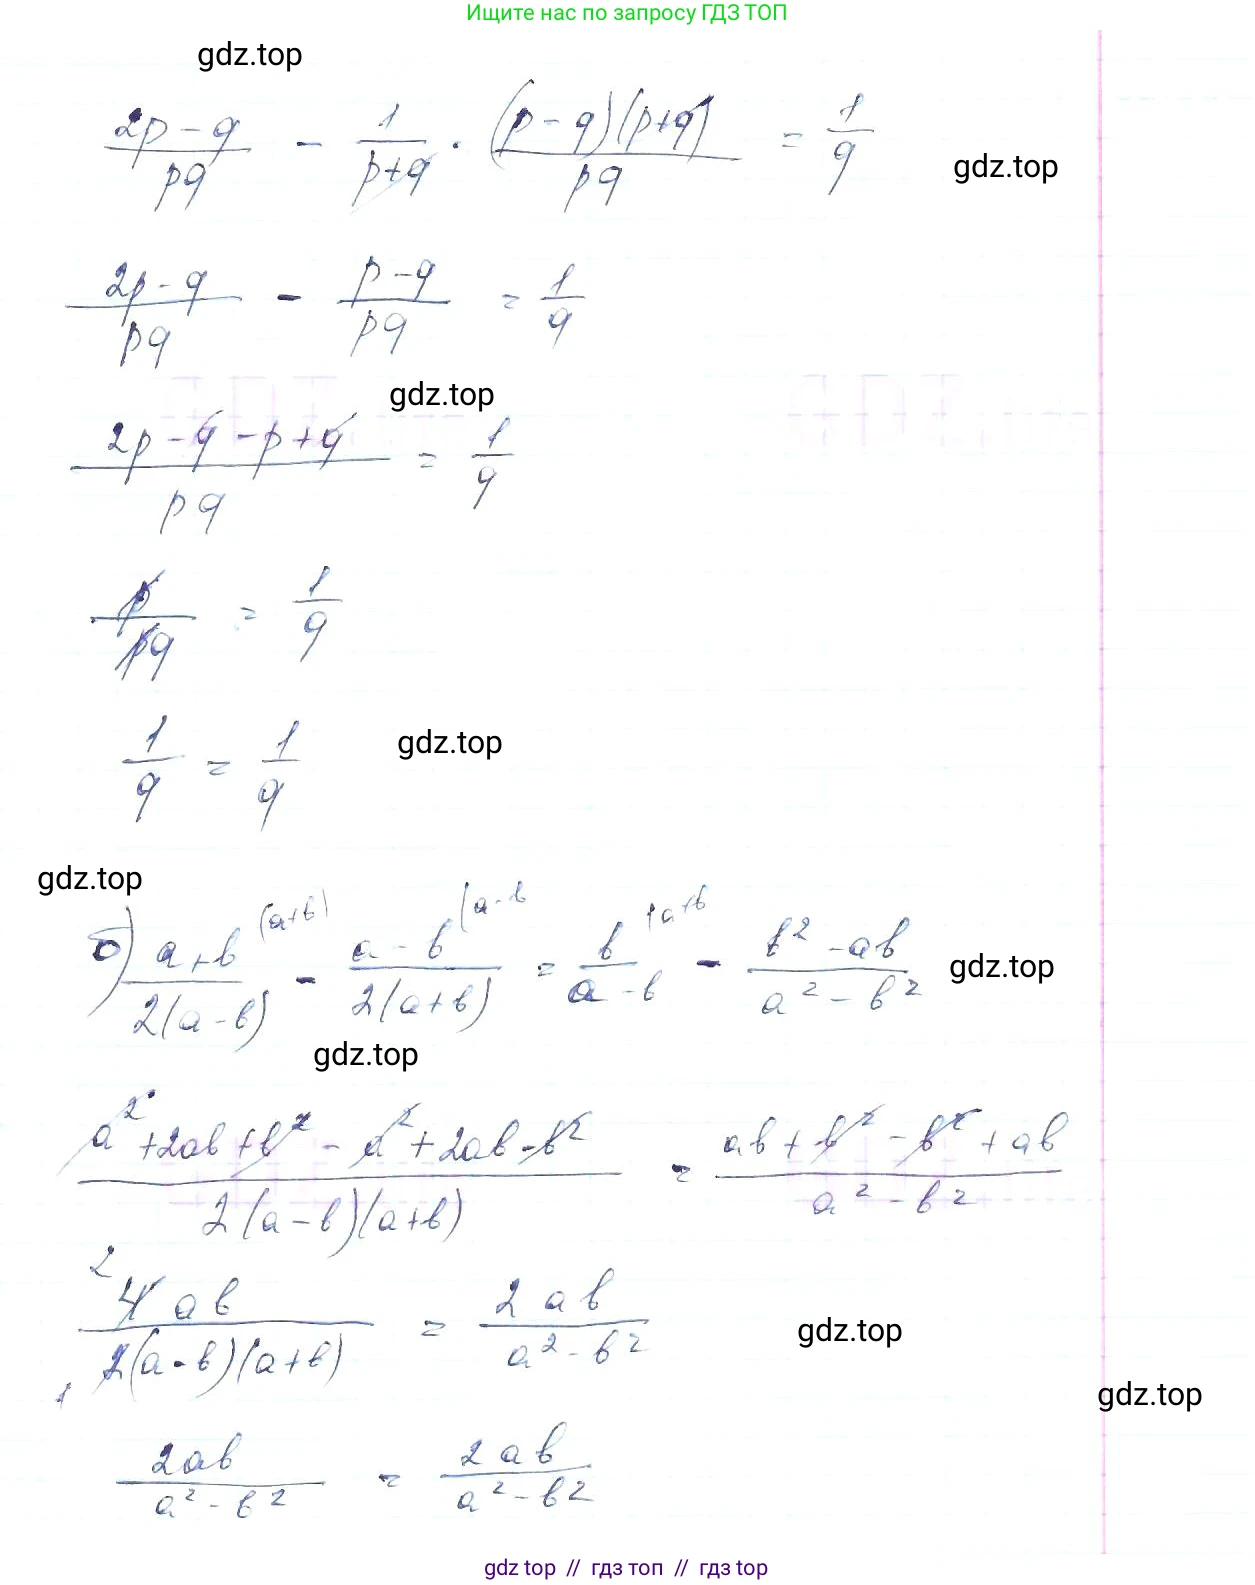 Ищите нас по запросу ГДЗ ТОП
gdz.top
(2p - q)/(pq) - 1/(p+q) · ((p - q)(p+q))/(pq) = 1/q
gdz.top
(2p - q)/(pq) - (p - q)/(pq) = 1/q
gdz.top
(2p - q - p + q)/(pq) = 1/q
p/(pq) = 1/q
1/q = 1/q
gdz.top
gdz.top
б) (a+b)/(2(a-b)) (a+b) - (a-b)/(2(a+b)) (a-b = b/(a-b) (a+b - (b² - ab)/(a² - b²)
gdz.top
gdz.top
(a² + 2ab + b² - a² + 2ab - b²)/(2(a-b)(a+b)) = (ab + b² - b² + ab)/(a² - b²)
2 4ab/(2(a-b)(a+b)) 1 = 2ab/(a² - b²)
gdz.top
gdz.top
2ab/(a² - b²) = 2ab/(a² - b²)
gdz top // гдз топ // гдз top